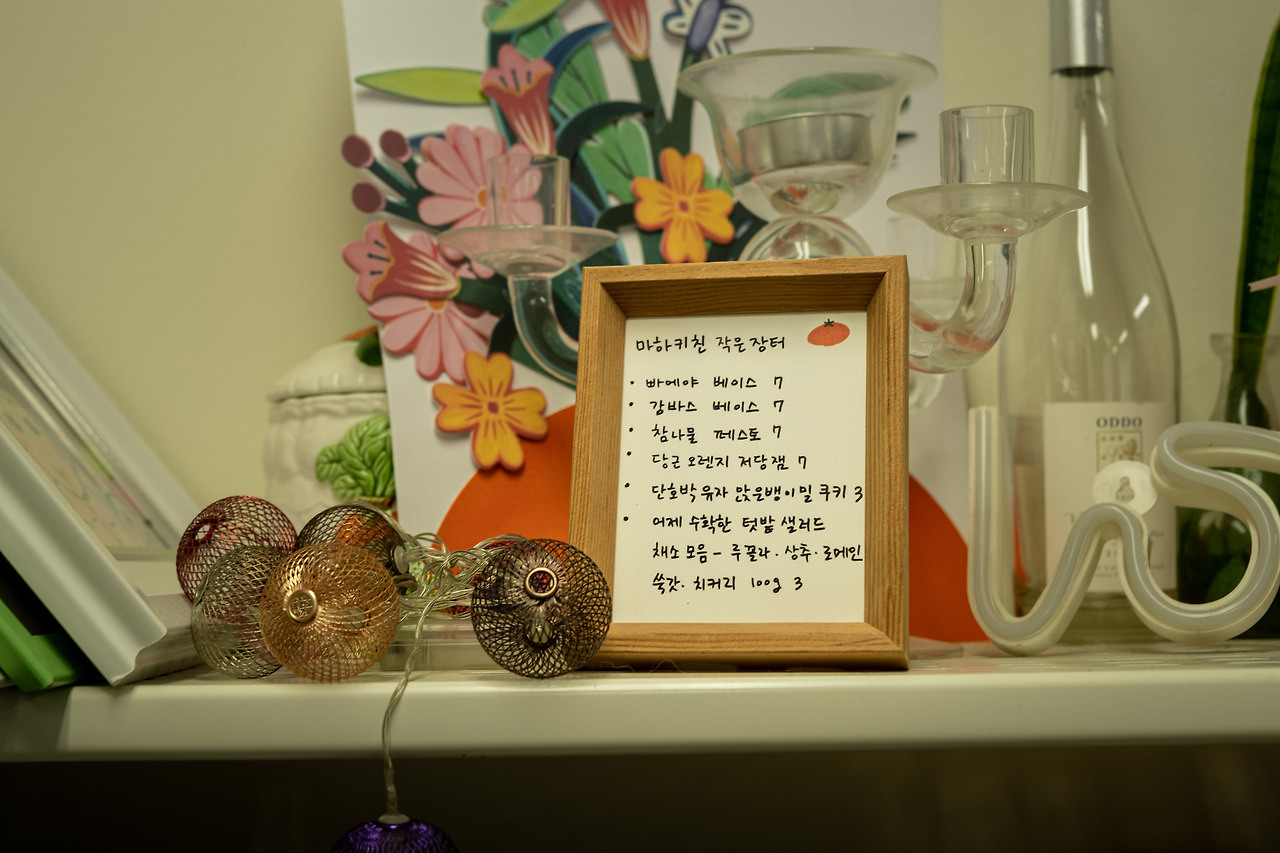 마하키친 작은장터
• 빠에야 베이스 7
• 감바스 베이스 7
• 참나물 페스토 7
• 당근 오렌지 저당잼 7
• 단호박 유자 앉은뱅이밀 쿠키 3
• 어제 수확한 텃밭 샐러드
채소 모음 - 루꼴라 · 상추 · 로메인
쑥갓 · 치커리 100g 3
ODDO